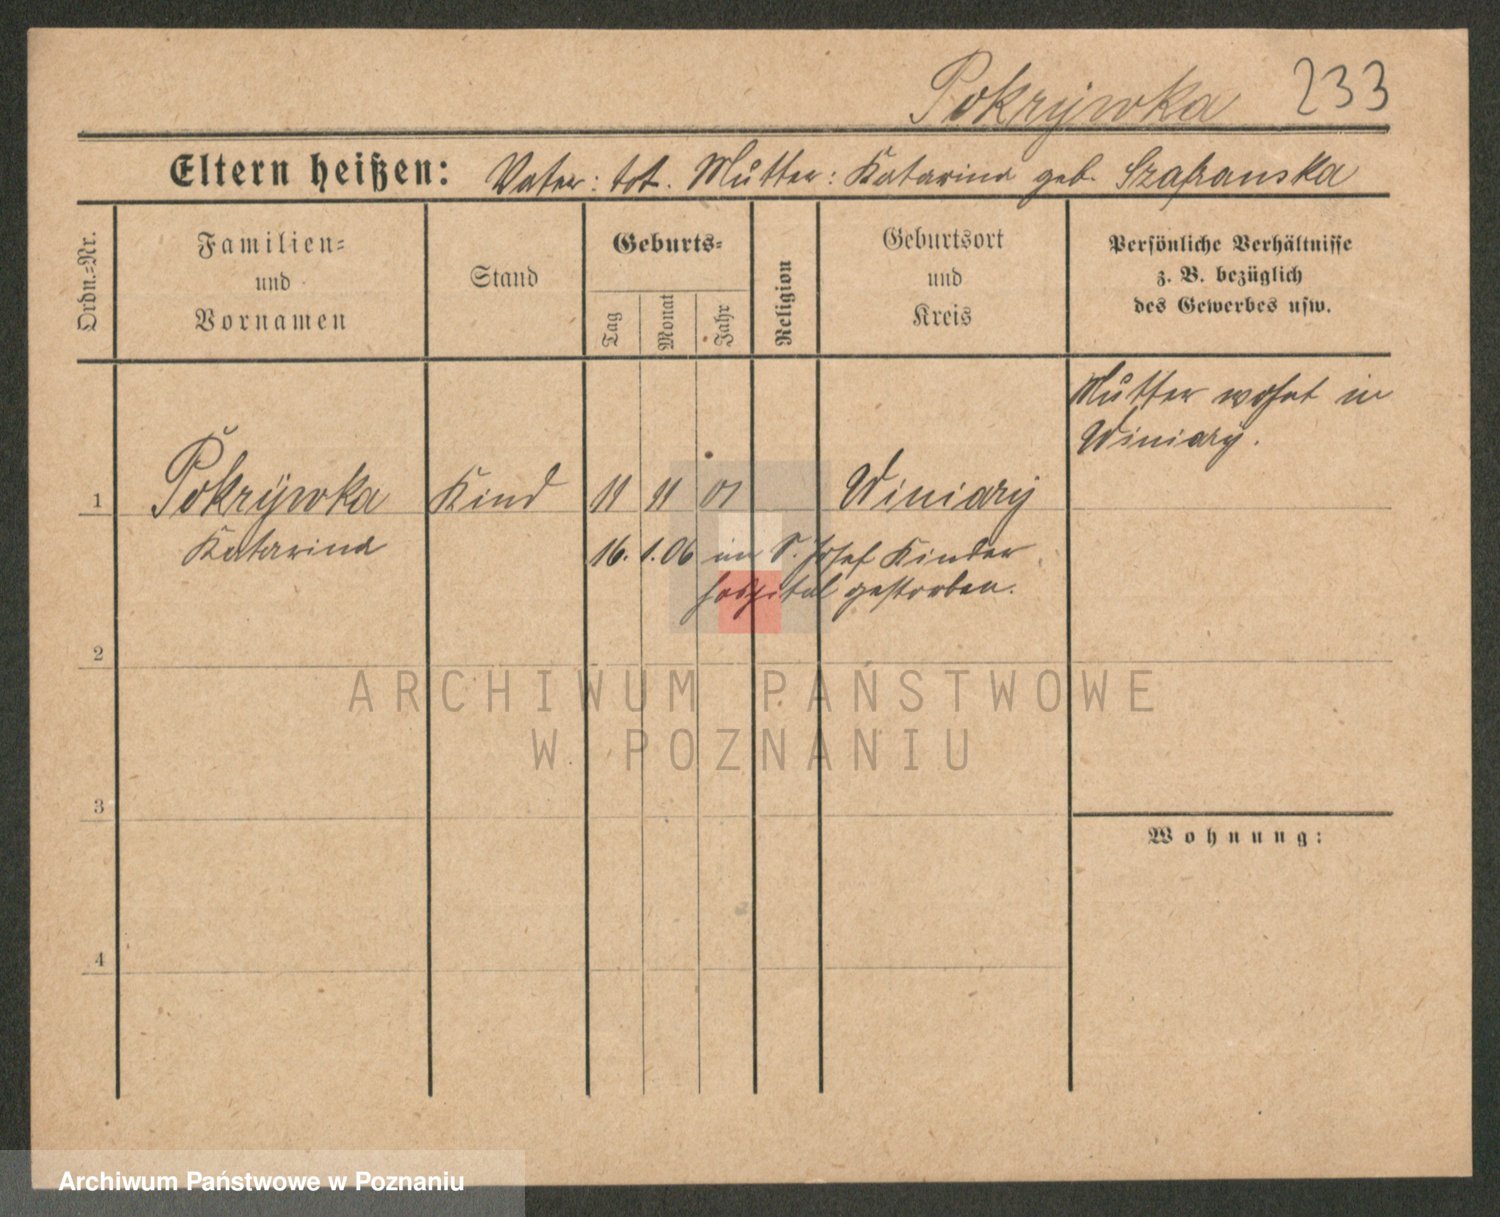 Pokrywka 233
Eltern heißen: Vater: tot. Mutter: Katarina geb. Szafranska
Ordn.=Nr.
Familien=
und
Vornamen
Stand
Geburts=
Tag
Monat
Jahr
Religion
Geburtsort
und
Kreis
Persönliche Verhältnisse
z. B. bezüglich
des Gewerbes usw.
Mutter wohnt in
Winiary.
1 Pokrywka Kind 11 11 01 Winiary
Katarina 16. 1. 06 im S. Josef Kinder
hospital gestorben.
2
ARCHIWUM PAŃSTWOWE
W POZNANIU
3
Wohnung:
4
Archiwum Państwowe w Poznaniu